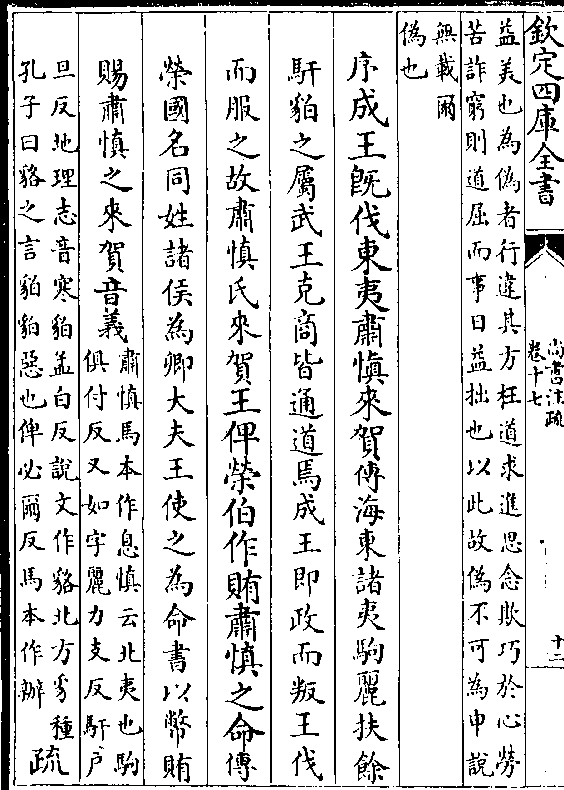 欽定四庫全書
尚書注疏
卷十七
十二
益美也為偽者行違其方枉道求進思念欺巧於心勞
苦詐窮則道屈而事日益拙也以此故偽不可為申說
無載爾
偽也
序成王既伐東夷肅慎來賀傳海東諸夷駒麗扶餘
馯貊之屬武王克商皆通道焉成王即政而叛王伐
而服之故肅慎氏來賀王俾榮伯作賄肅慎之命傳
榮國名同姓諸侯為卿大夫王使之為命書以幣賄
賜肅慎之來賀音義肅慎馬本作息慎云北夷也駒
俱付反又如字麗力支反馯戶
旦反地理志音寒貊孟白反說文作貉北方豸種
孔子曰貉之言貊貊惡也俾必爾反馬本作辦
疏